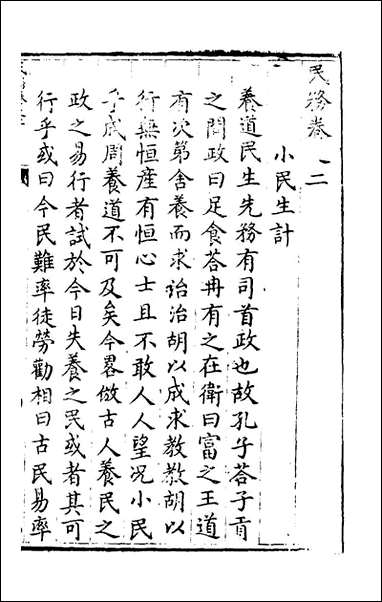 民務卷 二
小民生計
養道民生先務有司首政也故孔子荅子貢
之問政曰足食荅冉有之在衛曰富之王道
有次第舍養而求治治胡以成求教教胡以
行無恒産有恒心士且不敢人人望况小民
乎成周養道不可及矣今畧倣古人養民之
政之易行者試於今日失養之民或者其可
行乎或曰今民難率徒勞勸相曰古民易率